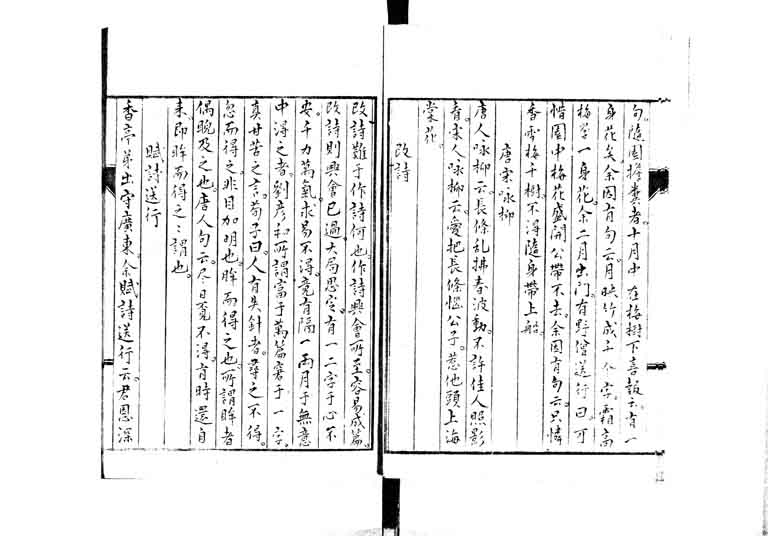 句隨園擔糞者十月中在梅樹下喜報云有一
身花矣余因有句云月映竹成千个字霜高
梅孕一身花余二月出門有野僧送行曰可
惜園中梅花盛開公帶不去余因有句云只憐
香雪梅千樹不得隨身帶上船
唐宋咏柳
唐人咏柳云長條乱拂春波動不許佳人照影
看宋人咏柳云愛把長條惱公子惹他頭上海
棠花
改詩
改詩難于作詩何也作詩興會所至容易成篇
改詩則興會已過大局思定有一二字于心不
安千力萬氣求易不得竟有隔一兩月于無意
中得之者劉彦和所謂富于萬篇窘于一字
真甘苦之言荀子曰人有失針者尋之不得
忽而得之非目加明也眸而得之也所謂眸者
偶睨及之也唐人句云尽日覓不得有時還自
来即眸而得之之謂也
賦詩送行
香亭弟出守廣東余賦詩送行云君恩深